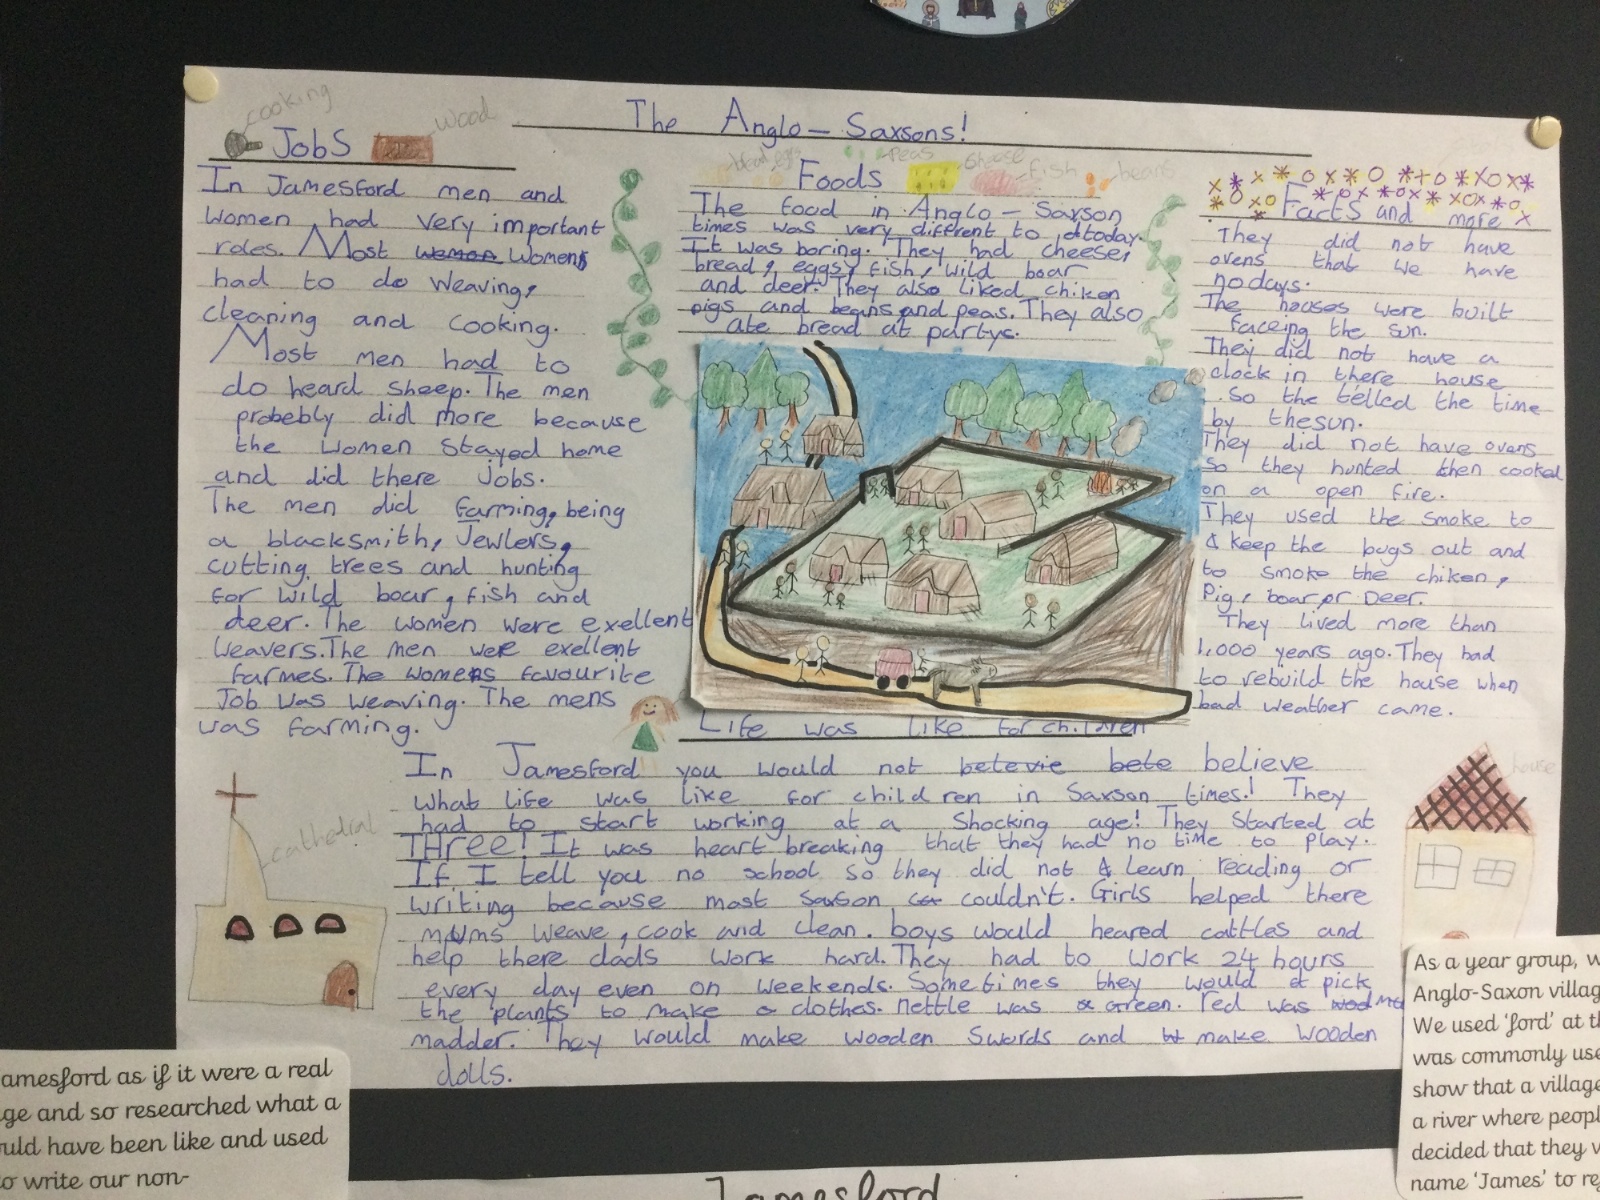 The Anglo-Saxsons!
cooking
Jobs
wood
In Jamesford men and
women had very important
roles. Most women womens
had to do weaving,
cleaning and cooking.
Most men had to
do heard sheep. The men
probebly did more because
the women stayed home
and did there jobs.
The men did farming, being
a blacksmith, Jewlers,
cutting trees and hunting
for wild boar, fish and
deer. The women were exellent
weavers. The men were exellent
farmes. The womens favourite
Job was weaving. The mens
was farming.
peas
fish
Foods
The food in Anglo-Saxson
times was very different to today.
It was boring. They had cheese,
bread, eggs, fish, wild boar
and deer. They also liked chiken
pigs and beans and peas. They also
ate bread at partys.
Facts and more
They did not have
ovens that we have
nodays.
The houses were built
faceing the sun.
They did not have a
clock in there house
so the telled the time
by thesun.
They did not have ovans
so they hunted then cooked
on a open fire.
They used the smoke to
& keep the bugs out and
to smoke the chiken,
Pig, boar or Deer.
They lived more than
1,000 years ago. They had
to rebuild the house when
bad weather came.
Life was like for children
In Jamesford you would not betevie bete believe
what life was like for children in Saxson times! They
had to start working at a shocking age! They started at
THree! It was heart breaking that they had no time to play.
If I tell you no school so they did not & learn reading or
writing because most saxson couldn't. Girls helped there
mums weave, cook and clean. boys would heared cattles and
help there dads work hard. They had to work 24 hours
every day even on weekends. Sometimes they would pick
the plants to make clothes. nettle was green. red was
madder. They would make wooden swords and make wooden
dolls.
cathedral
house
amesford as if it were a real
ge and so researched what a
uld have been like and used
o write our non-
As a year group, w
Anglo-Saxon villag
We used 'ford' at th
was commonly use
show that a village
a river where peopl
decided that they w
name 'James' to re
Jamesford